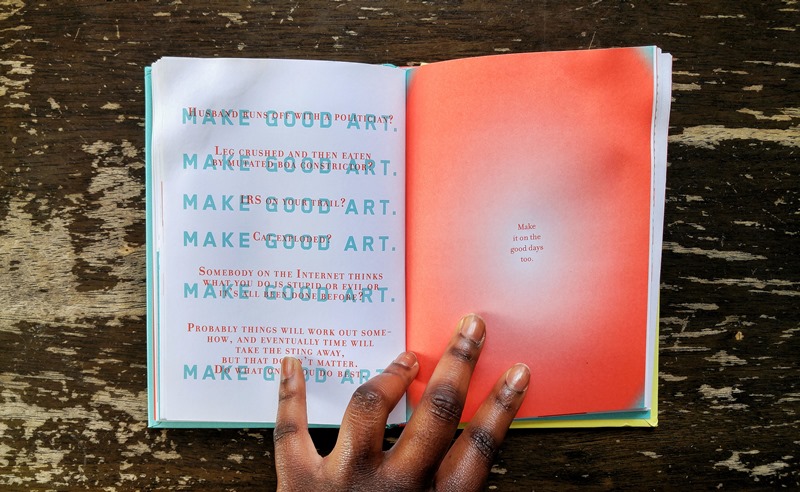 HUSBAND RUNS OFF WITH A POLITICIAN?
MAKE GOOD ART.
LEG CRUSHED AND THEN EATEN
BY MUTATED BOA CONSTRICTOR?
MAKE GOOD ART.
IRS ON YOUR TRAIL?
MAKE GOOD ART.
CAT EXPLODED?
MAKE GOOD ART.
SOMEBODY ON THE INTERNET THINKS
WHAT YOU DO IS STUPID OR EVIL OR
IT'S ALL BEEN DONE BEFORE?
MAKE GOOD ART.
PROBABLY THINGS WILL WORK OUT SOME-
HOW, AND EVENTUALLY TIME WILL
TAKE THE STING AWAY,
BUT THAT DOESN'T MATTER.
DO WHAT ONLY YOU DO BEST.
MAKE GOOD ART.
Make
it on the
good days
too.